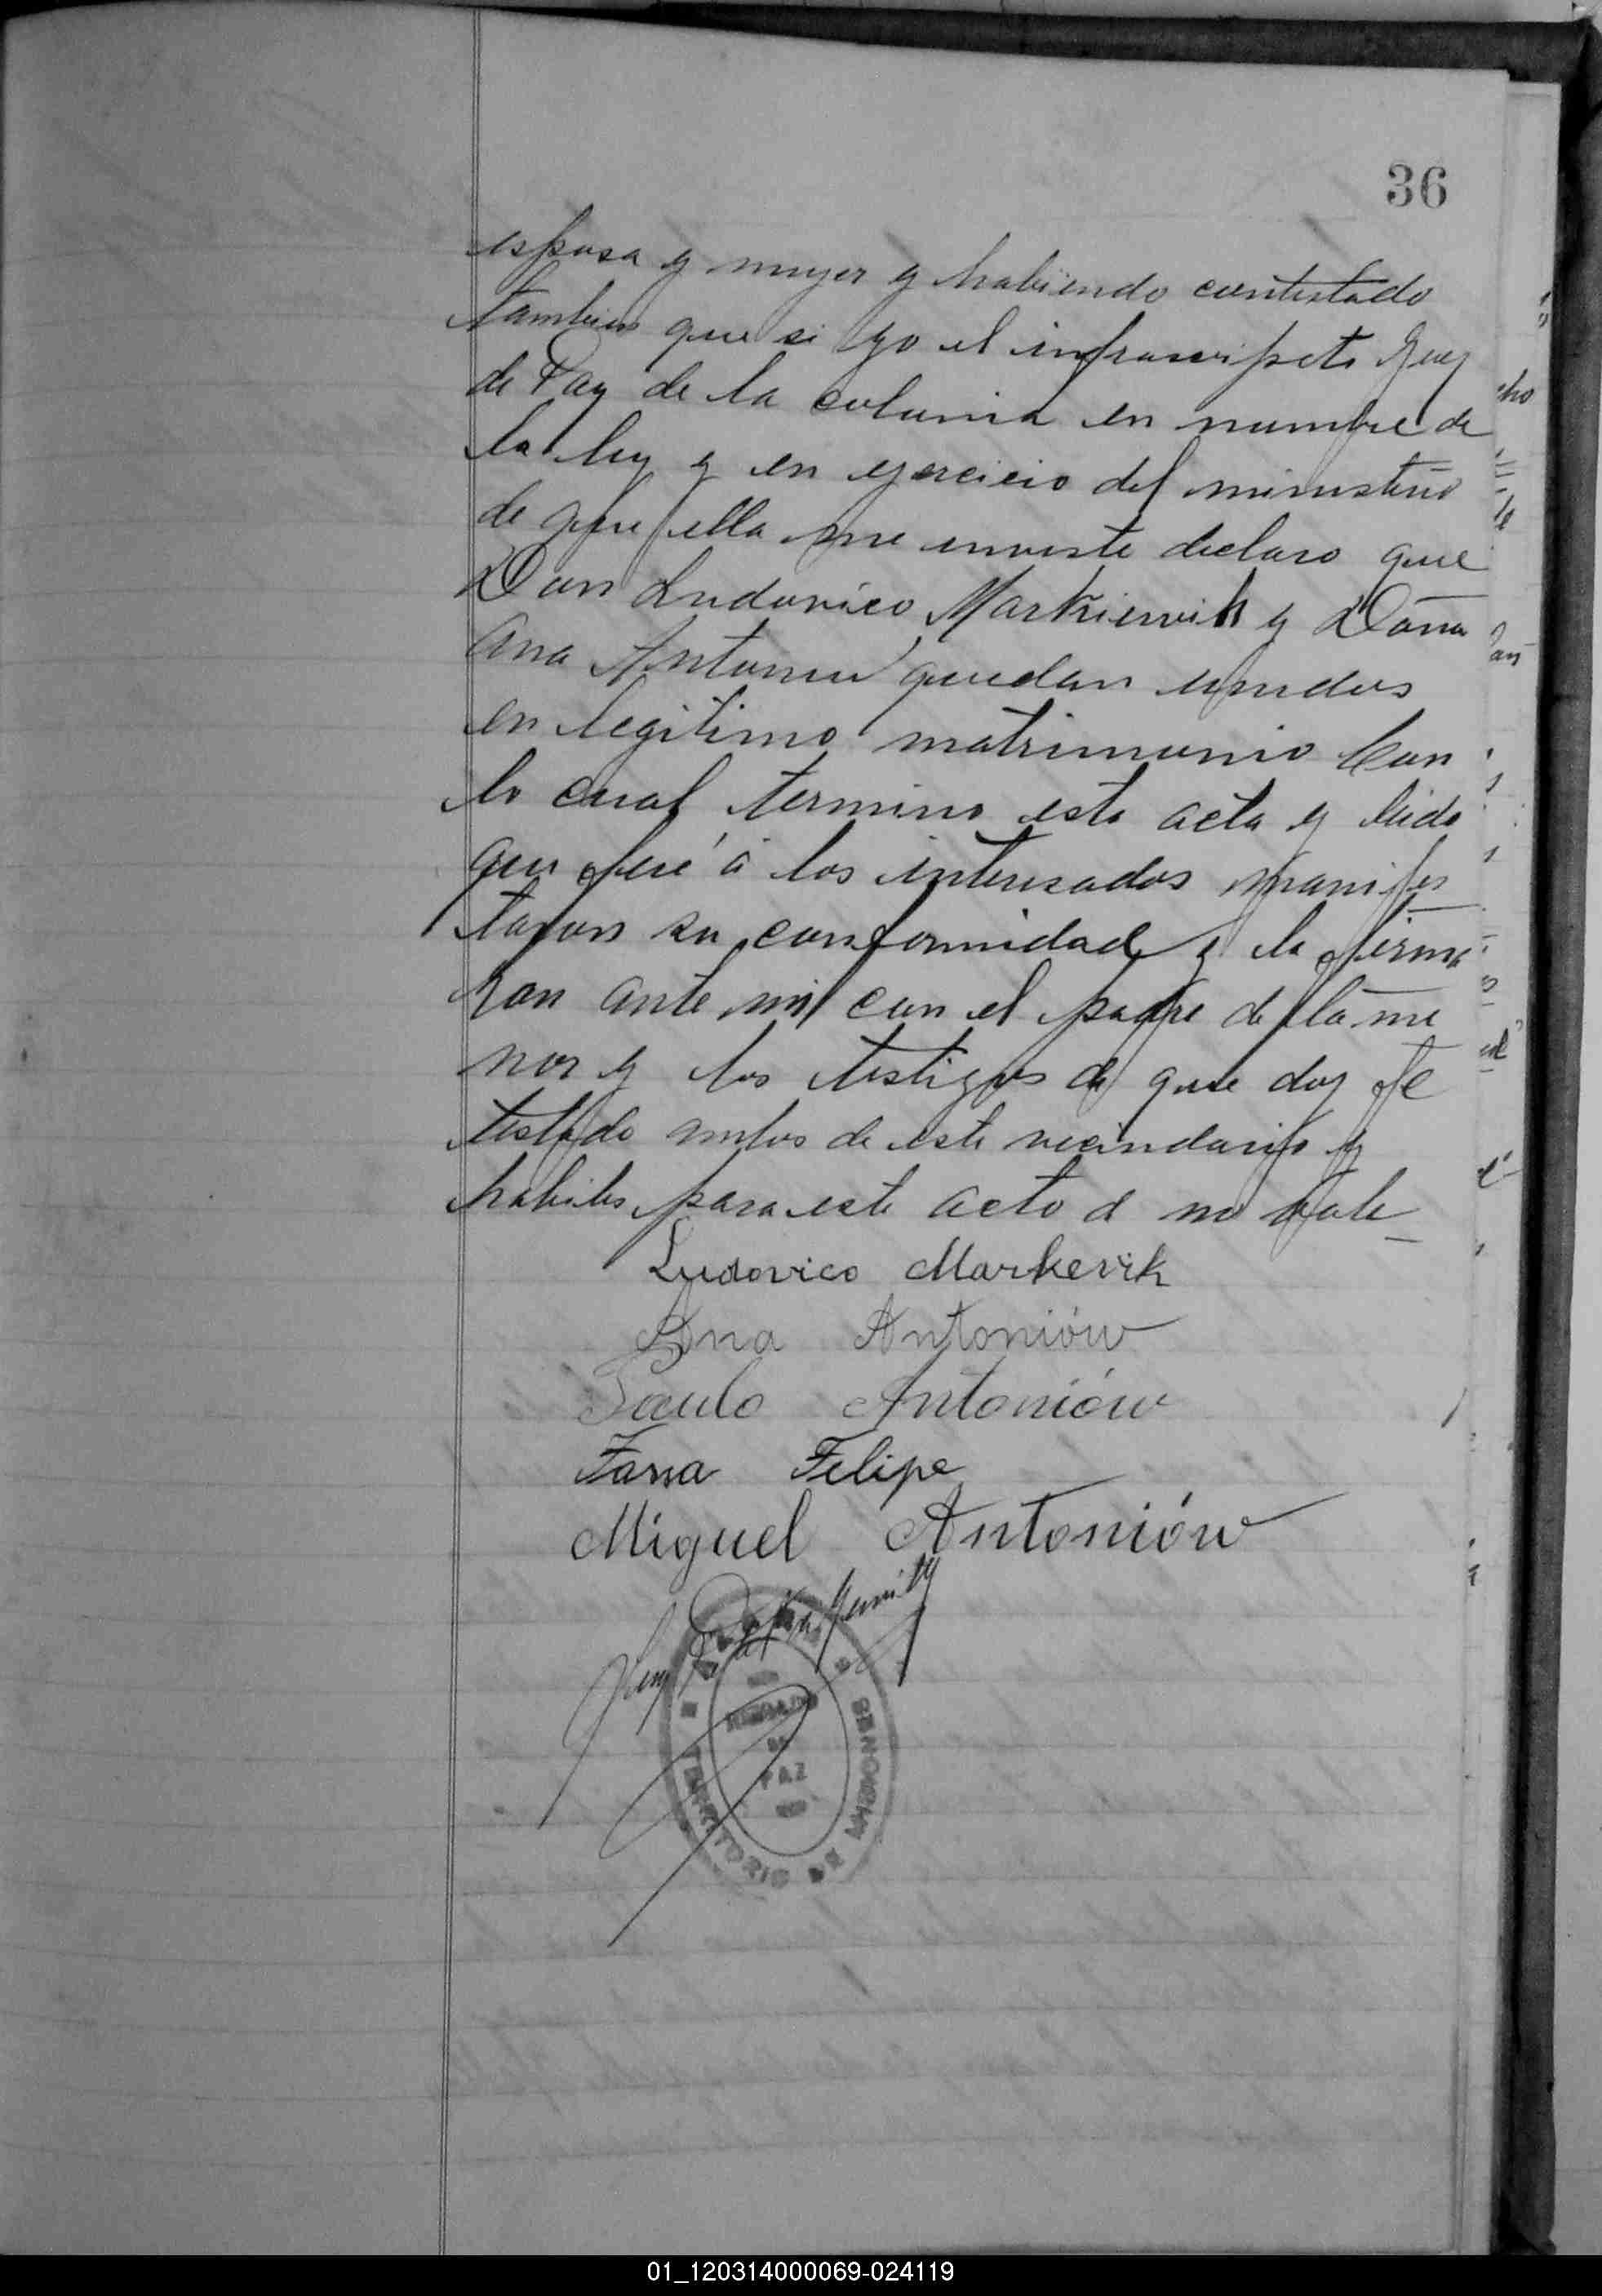 36
esposa y muger y habiendo contestado
tambien que si yo el infrascripto Juez
de Paz de la colonia en nombre de
la ley y en ejercicio del ministerio
de que ella me enviste declaro que
Don Ludovico Markievik y Doña
Ana Antoniu quedan unidos
en legitimo matrimonio Con
lo cual termino esta acta y leida
que fué á los interesados manifes
taron su conformidad y la firma
ron ante mi con el padre de la me
nor y los testigos de que doy fe
testado ambos de este vecindario y
habiles para este acto d no vale
Ludovico Markevik
Ana Antoniów
Paulo Antoniów
Felipe
Miguel Antoniów
JUZGADO
DE
PAZ
TERRITORIO DE MISIONES
01_120314000069-024119